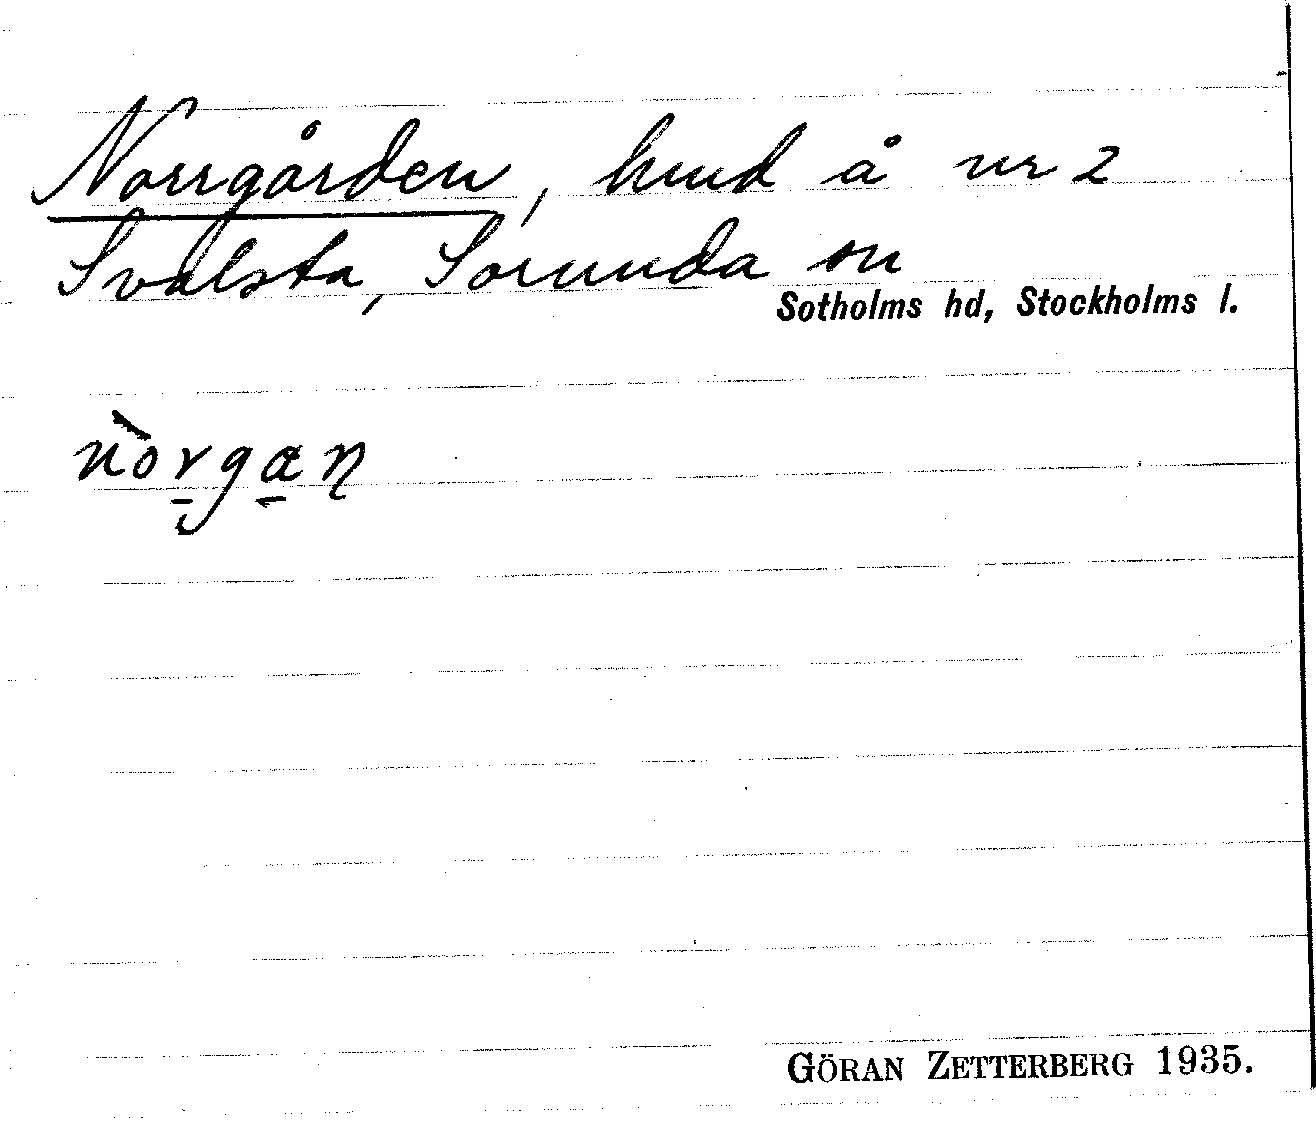 Norrgården, hmd å nr 2
Svalsta, Sorunda sn
Sotholms hd, Stockholms l.
nòrgan
GÖRAN ZETTERBERG 1935.